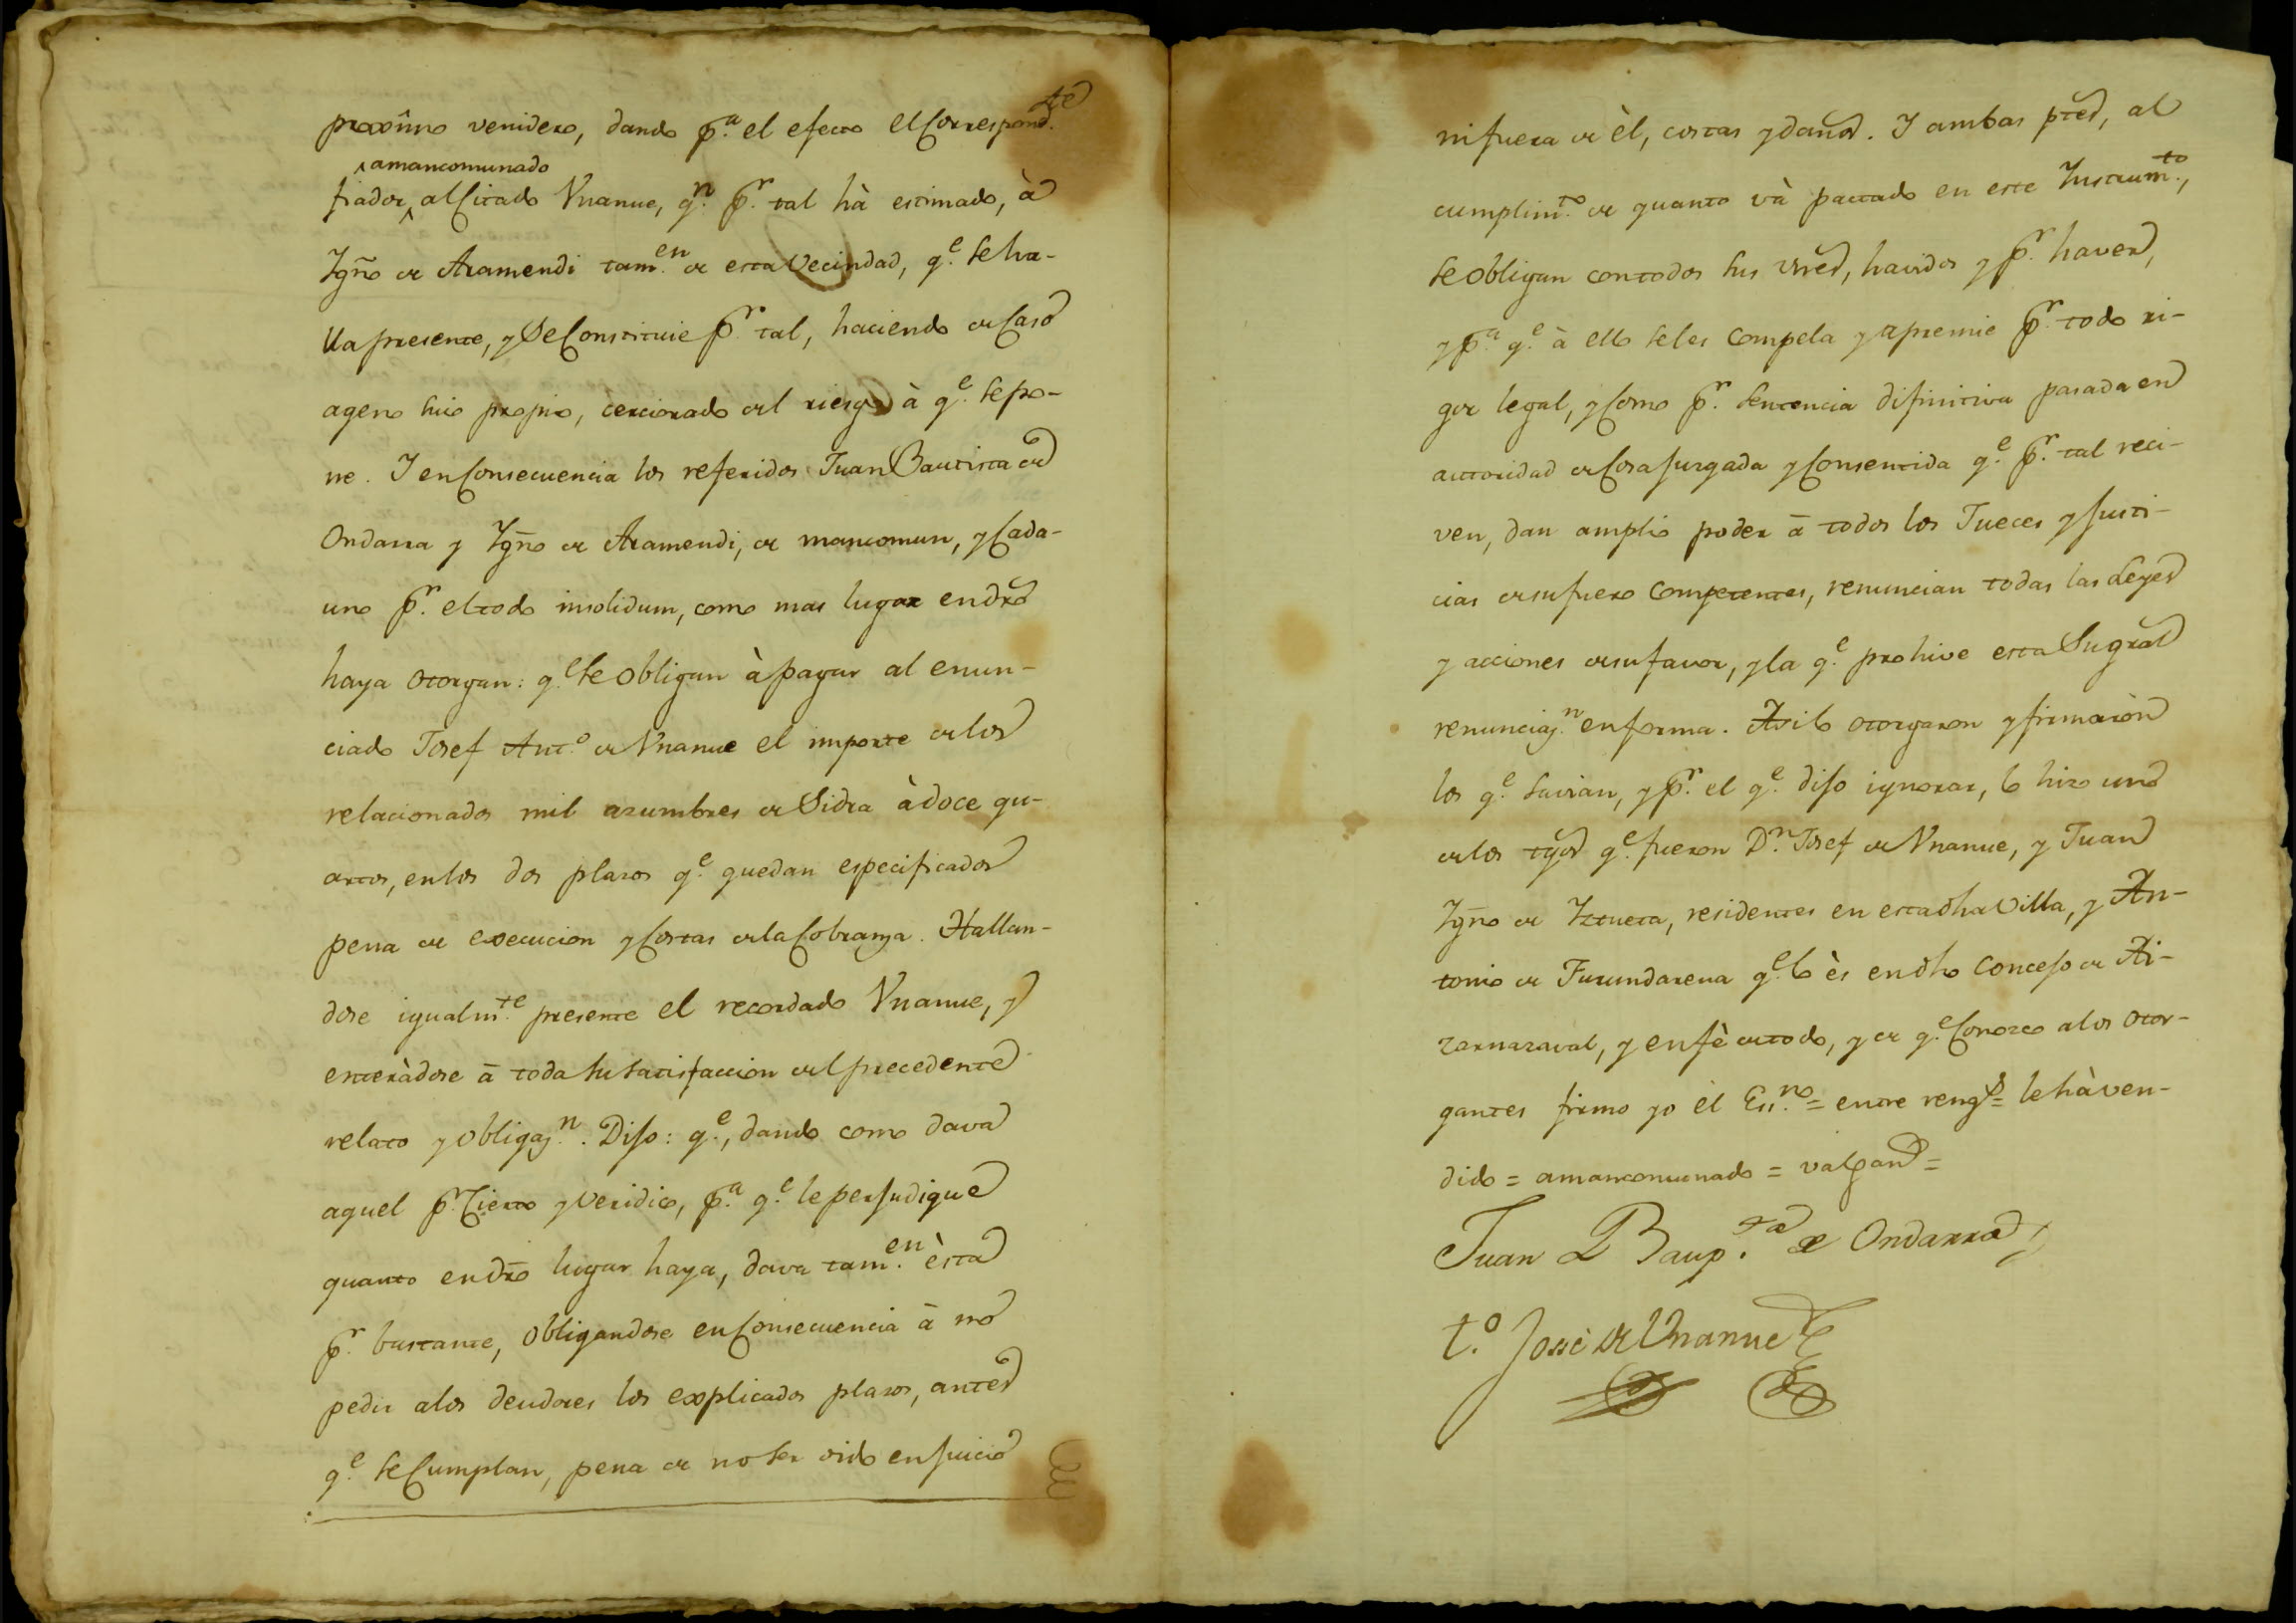 proximo venidero, dando p.ª el efecto el Correspond.te
amancomunado
fiador, al Citado Vnanue, q.n p.r tal hà estimado, à
Ygño de Aramendi tam.en de esta Vecindad, q.e se ha-
lla presente, y se Constituie p.r tal, haciendo de Caso
ageno suio propio, cerciorado del riesgo à q.e se po-
ne. Y en Consecuencia los referidos Juan Bautista de
Ondarra y Ygño de Aramendi, de mancomun, y Cada-
uno p.r el todo insolidum, como mas lugar en dro
haya otorgan: q.e se obligan à pagar al enun-
ciado Josef Ant.o de Vnanue el importe de los
relacionados mil azumbres de Sidra à doce qu-
artos, en los dos plazos q.e quedan especificados
pena de execucion y Costas de la Cobranza. Hallan-
dose igualm.te presente el recordado Vnanue, y
enteràdose à toda su satisfaccion del precedente
relato y obligaz.n. Dijo: q.e, dando como dava
aquel p.r Cierto y Veridico, p.a q.e le perjudique
quanto en dro lugar haya, dava tam.en èsta
p.r bastante, obligandose en Consecuencia à no
pedir a los deudores los explicados plazos, antes
q.e se Cumplan, pena de no ser oido en juicio
ni fuera de èl, costas y daños. Y ambas ptes, al
cumplim.to de quanto và pactado en este Instrum.to,
se obligan con todos sus vnes, havidos y p.r haver,
y p.a q.e à ello se les Compela y apremie p.r todo ri-
gor legal, y Como p.r sentencia difinitiva pasada en
autoridad de Cosa juzgada y Consentida q.e p.r tal reci-
ven, dan amplio poder à todos los Jueces y justi-
cias de su fuero Competentes, renuncian todas las Leyes
y acciones de su favor, y la q.e prohive esta Su gral
renunciaz.n en forma. Asi lo otorgaron y firmaron
los q.e savian, y p.r el q.e dijo ignorar, lo hizo uno
de los tgos q.e fueron D.n Josef de Vnanue, y Juan
Ygño de Yztueta, residentes en esta dha Villa, y An-
tonio de Furundarena q.e lo ès en dho Concejo de Ai-
zarnazaval, y en fè de todo, y de q.e Conozco a los otor-
gantes firmo yo el Es.no = entre reng.s = le hà ven-
dido = amancomunado = valgan =
Juan Baup.ta de Ondarra
t.o José de Vnanue